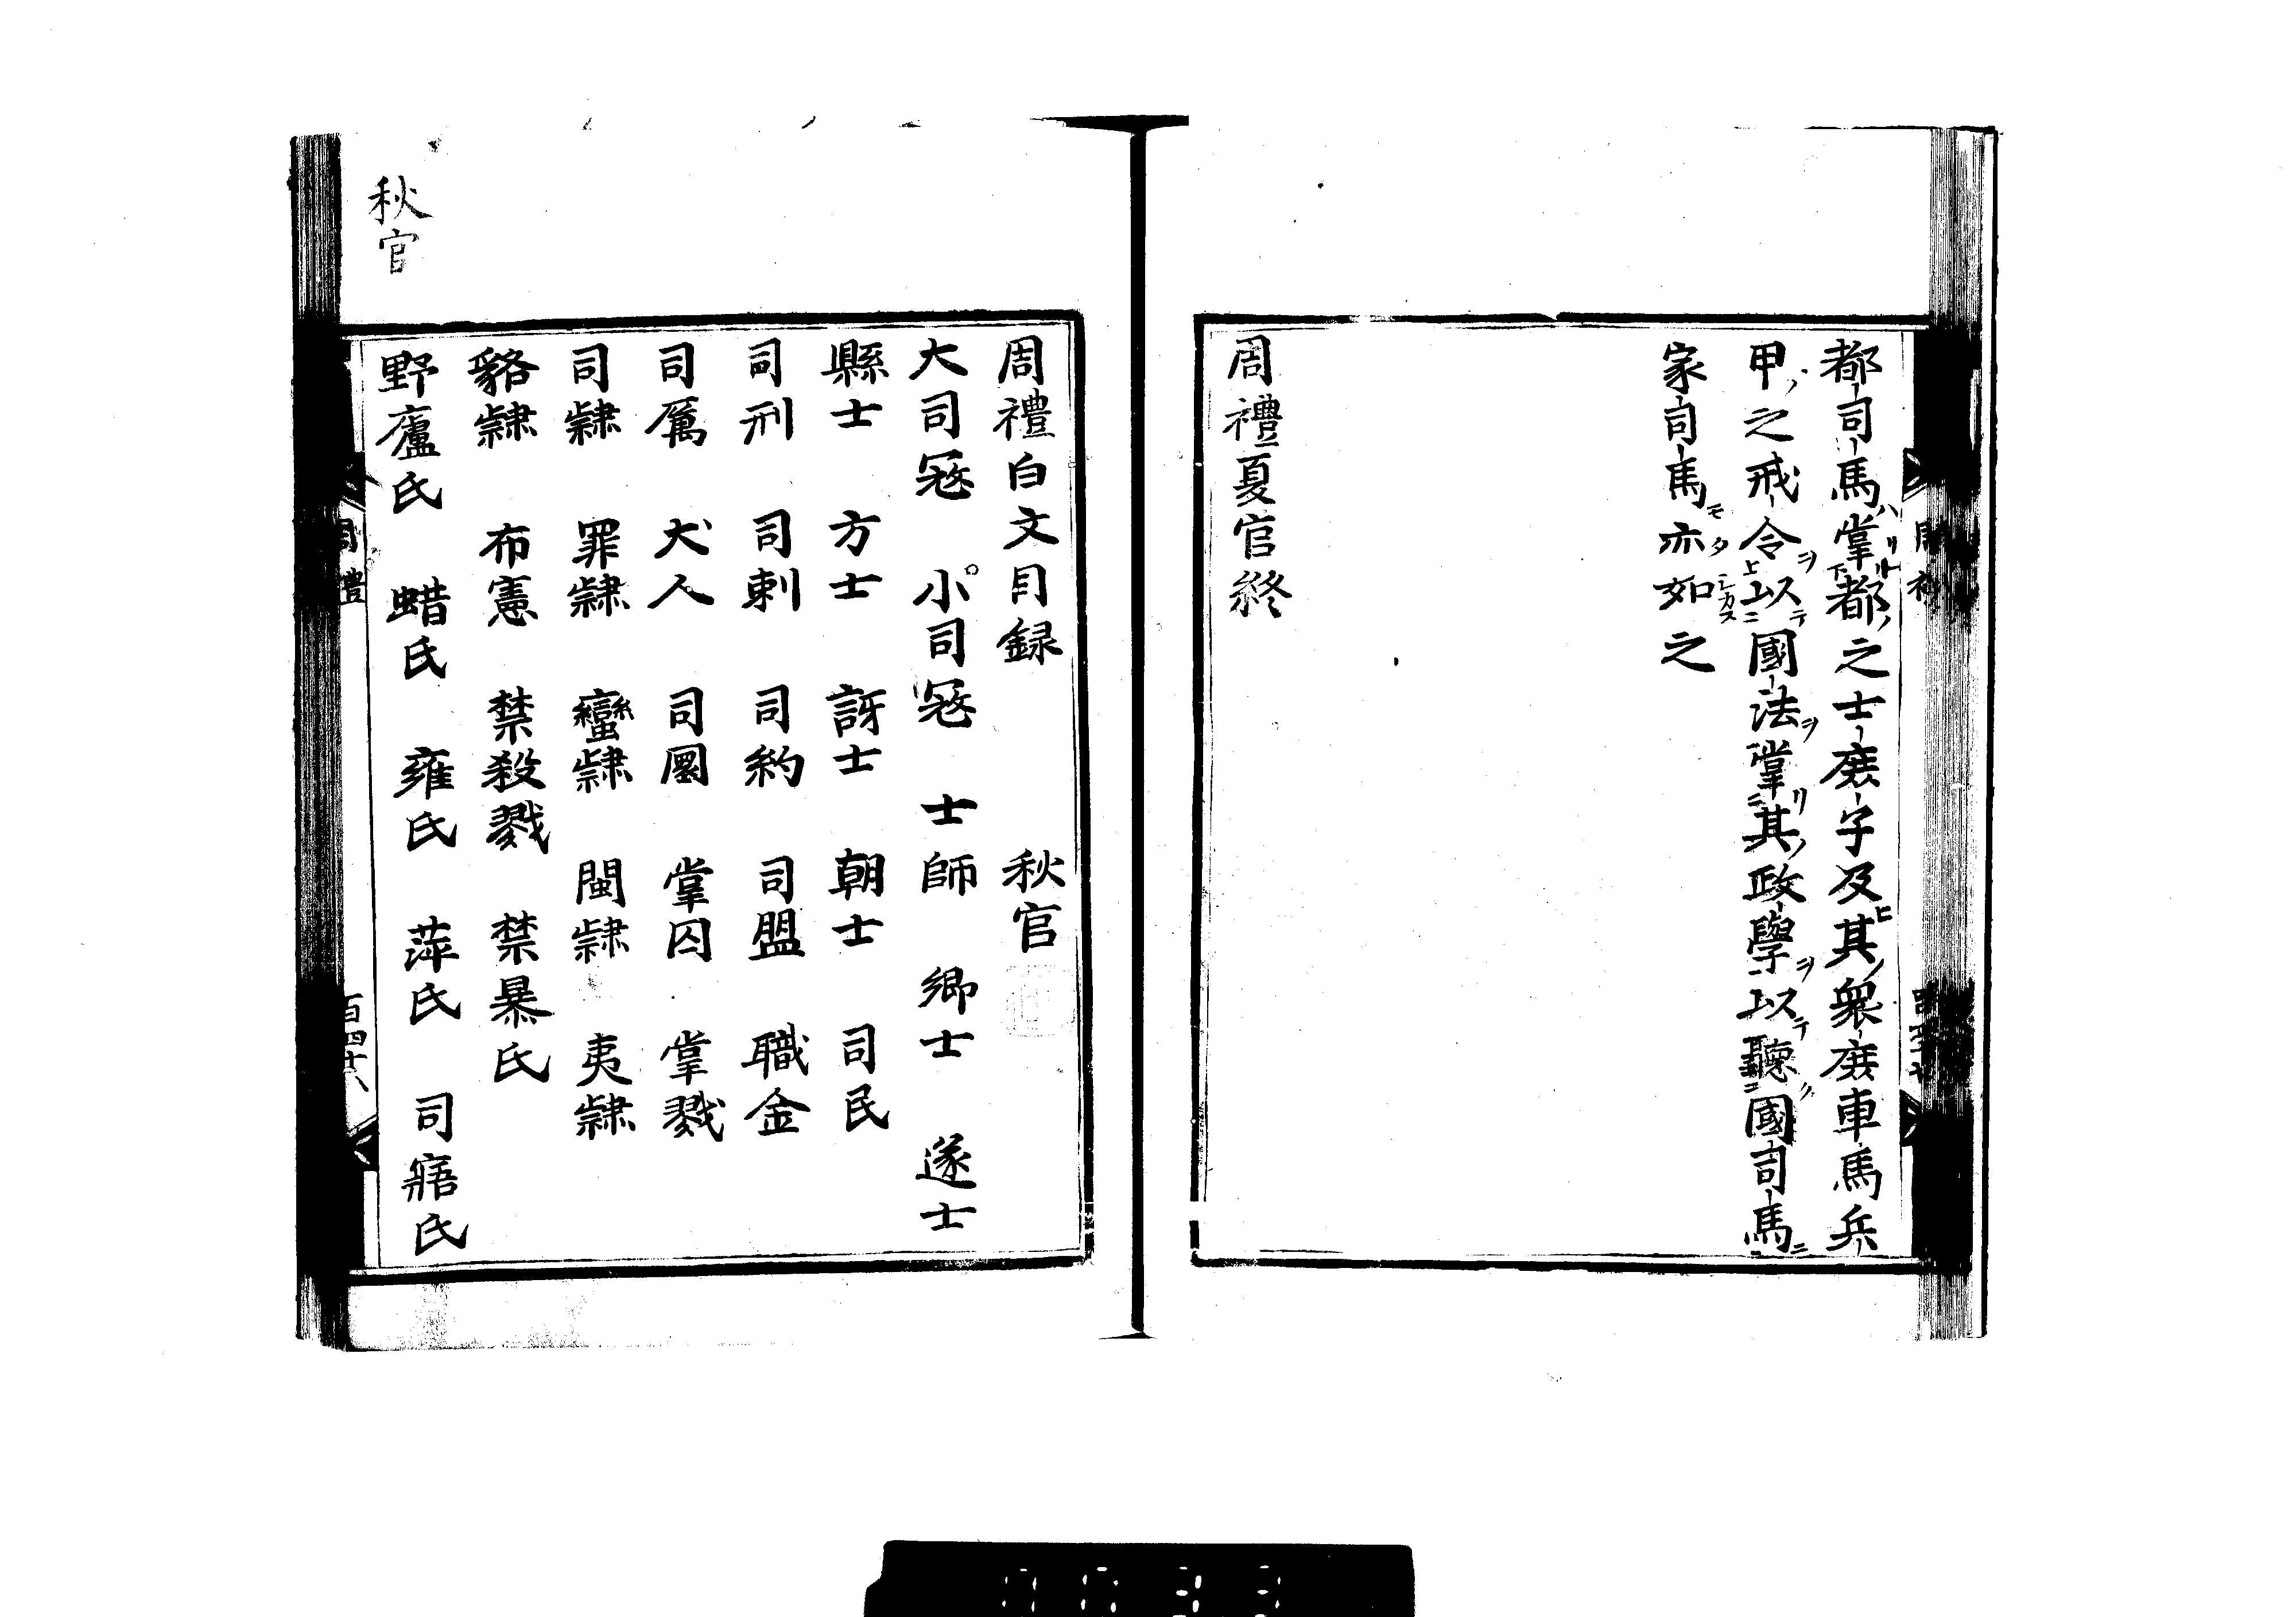 都司馬掌都之士庶子及其衆庶車馬兵
甲之戒令以國法掌其政學以聽國司馬
家司馬亦如之
周禮夏官終
秋官
周禮白文目録 秋官
大司冦 小司冦 士師 鄉士 遂士
縣士 方士 訝士 朝士 司民
司刑 司刺 司約 司盟 職金
司厲 犬人 司圜 掌囚 掌戮
司隷 罪隷 蠻隷 閩隷 夷隷
貉隷 布憲 禁殺戮 禁暴氏
野廬氏 蜡氏 雍氏 萍氏 司寤氏
周禮
百四十八